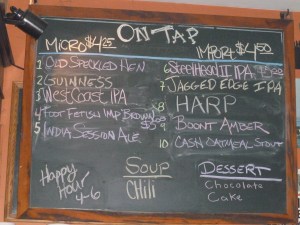 ON TAP
MICRO $4.25
IMPORT $4.50
1 OLD SPECKLED HEN
2 GUINNESS
3 WEST COAST IPA
4 FOOT FETISH IMP BROWN
5 INDIA SESSION ALE
6 STEELHEAD II IPA
7 JAGGED EDGE IPA
8 HARP
9 BOONT AMBER
10 CASK OATMEAL STOUT
Happy Hour 4-6
SOUP
CHILI
DESSERT
Chocolate
Cake